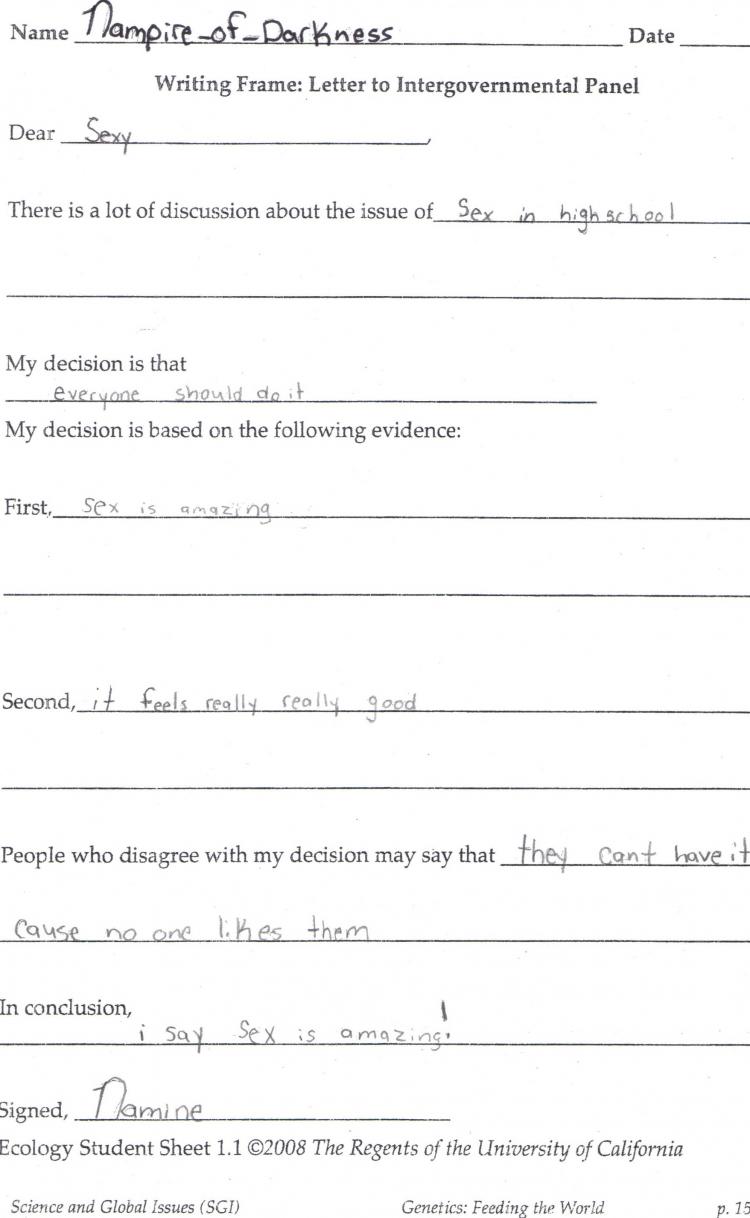 Name Nampire_of_Darkness Date
Writing Frame: Letter to Intergovernmental Panel
Dear Sexy,
There is a lot of discussion about the issue of Sex in highschool
My decision is that
everyone should do it
My decision is based on the following evidence:
First, sex is amazing
Second, it feels really really good
People who disagree with my decision may say that they cant have it
cause no one likes them
In conclusion,
i say sex is amazing!
Signed, Namine
Ecology Student Sheet 1.1 ©2008 The Regents of the University of California
Science and Global Issues (SGI) Genetics: Feeding the World p. 15